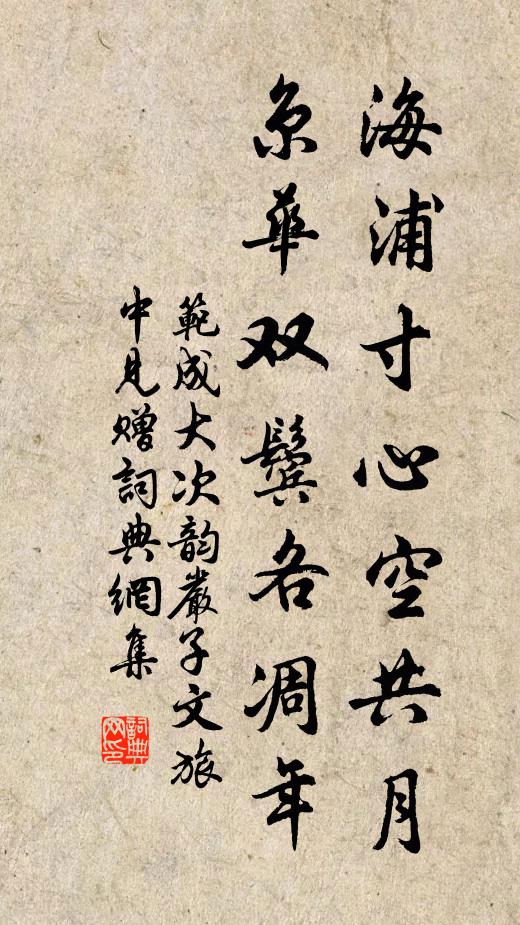 海浦寸心空共月
京华双鬓各凋年
範成大次韵嚴子文旅
中見赠詞典網集
詞典网印